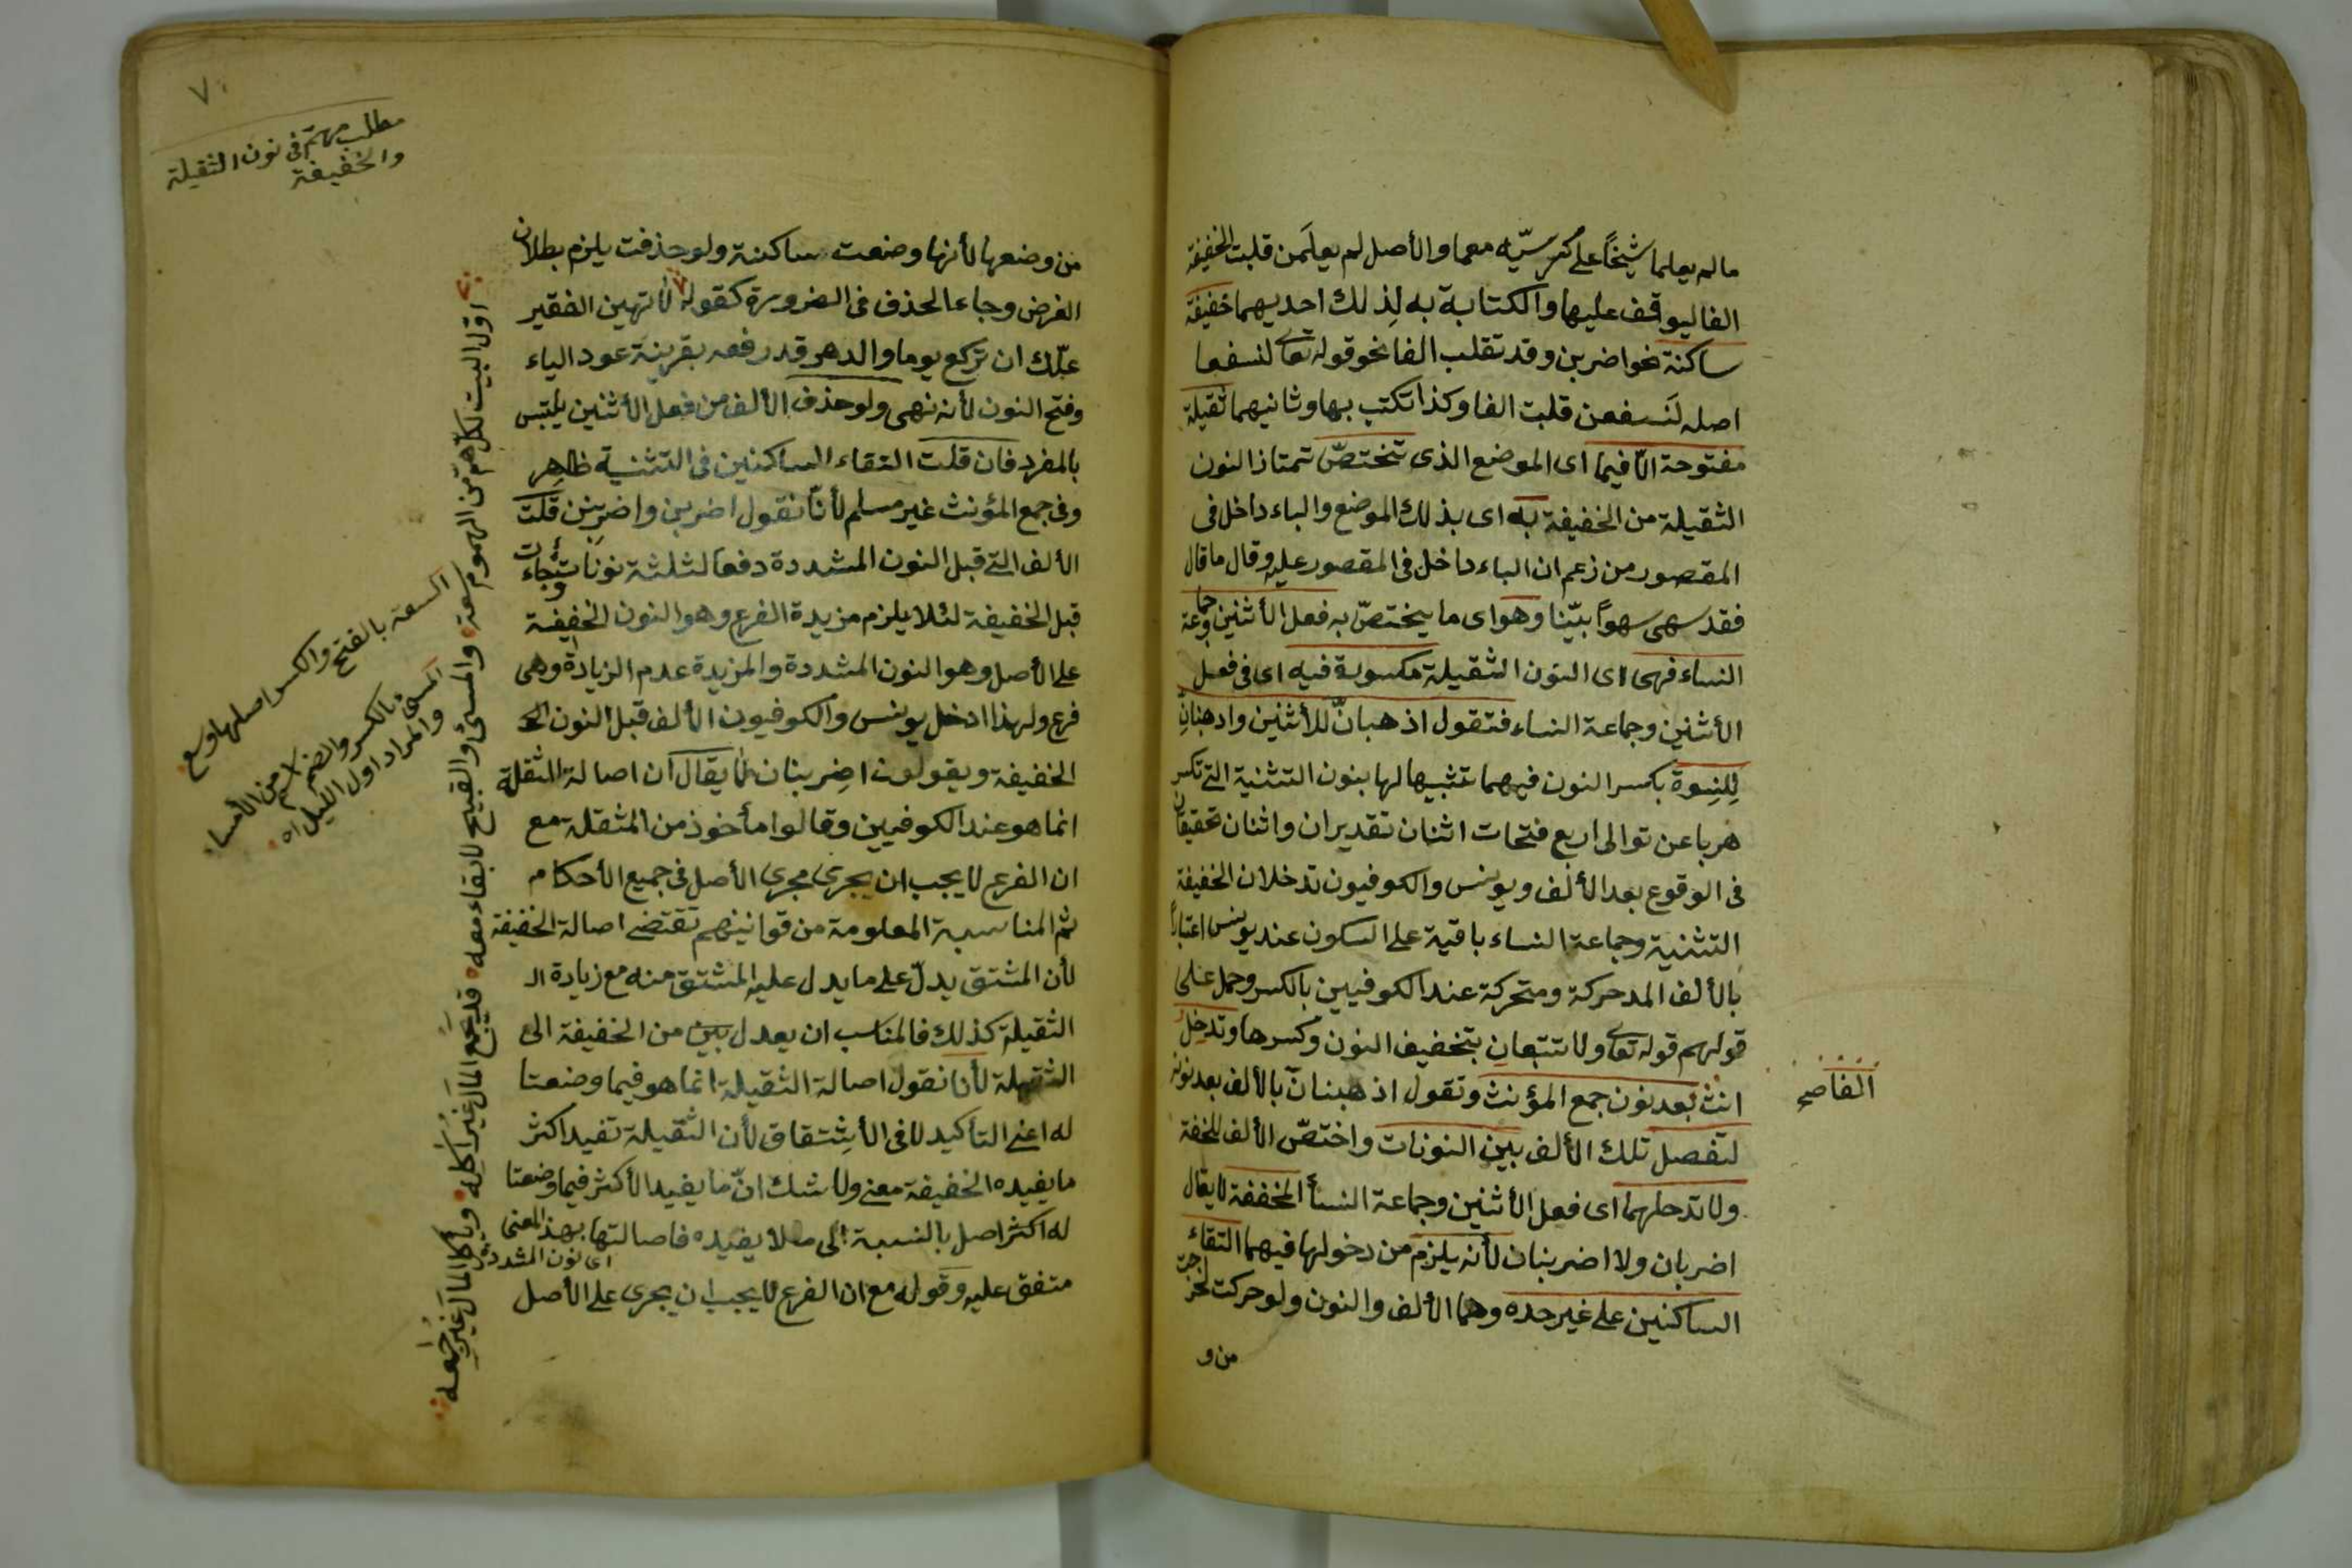 ما لم يعلما شيخًا على كرسيّه معمما والأصل لم يعلَمن قلبت الخفيفة
الفا ليوقف عليها والكتابة به لِذلك احديهما خفيفة
ساكنة نحو اضربن وقد تقلب الفا نحو قوله تعالى لنسفعا
اصله لَنسفعن قلبت الفا وكذا تكتب بها وثانيهما ثقيلة
مفتوحة الّا فيما اى الموضع الذى تختصّ تمتاز النون
الثقيلة من الخفيفة به اى بذلك الموضع والباء داخل فى
المقصور من زعم ان الباء داخل فى المقصور عليه وقال ما قال
فقد سهى سهوًا بيّنا وهو اى ما يختصّ به فعل الأثنين وجماعة
النساء فهى اى النون الثقيلة مكسورة فيه اى فى فعل
الأثنين وجماعة النساء فتقول اذهبانّ للأثنين واذهبنانِّ
لِلنِسوة بكسر النون فيهما تشبيها لها بنون التثنية التى تكسر
هربا عن توالى اربع فتحات اثنان تقديران واثنان تحقيقان
فى الوقوع بعد الألف ويونس والكوفيون تدخلان الخفيفة
التثنية وجماعة النساء باقية على السكون عند يونس اعتبارًا
بالألف المد حركة ومتحركة عند الكوفيين بالكسر وحمل على
قولهم قوله تعالى ولا تتبعانِ بتخفيف النون وكسرها وتدخلُ
انت بعد نون جمع المؤنث وتقول اذهبنانّ بالألف بعد نونه
الفاصح
لتفصل تلك الألف بين النونات واختصّ الألف للخفة
ولا تدخلهما اى فعل الأثنين وجماعة النسأ المخففة لا يقال
اضربان ولا اضربنان لأنه يلزم من دخولها فيهما التقاء
الساكنين على غير حده وهما الألف والنون ولو حركت لخرجت
من و
٧
مطلب مهمّ فى نون الثقيلة
والخفيفة
من وضعها لأنها وضعت ساكنة ولو حذفت يلزم بطلان
الغرض وجاء الحذف فى الضرورة كقوله لا تهين الفقير
علّك ان تركع يوما والدهر قد رفعه بقرينة عود الياء
وفتح النون لأنه نهى ولو حذف الألف من فعل الأثنين يلتبس
بالمفرد فان قلت التقاء الساكنين فى التثنية ظاهر
وفى جمع المؤنث غير مسلم لأنّا نقول اضربن واضربنن قلت
الألف التى قبل النون المشددة دفعا لثلثة نونات وجاءت
قبل الخفيفة لئلا يلزم مزيدة الفرع وهو النون الخفيفة
على الأصل وهو النون المشددة والمزيدة عدم الزيادة وهى
فرع ولهذا ادخل يونس والكوفيون الألف قبل النون
الخفيفة ويقولون اضِربنان لا يقال ان اصالة المثقلة
انما هو عند الكوفيين وقالوا مأخوذ من المثقلة مع
ان الفرع لا يجب ان يجرى مجرى الأصل فى جميع الأحكام
ثم المناسبة المعلومة من قوانينهم تقتضى اصالة الخفيفة
لأن المشتق يدلّ على ما يدل عليه المشتق منه مع زيادة
الثقيلة كذلك فالمناسب ان يعدل من الخفيفة الى
الثقيلة لأنا نقول اصالة الثقيلة انما هو فيما وضعتا
له اعنى التأكيد لا فى الأشتقاق لأن الثقيلة تفيد اكثر
ما يفيده الخفيفة معنى ولا شك انّ ما يفيد الأكثر فيما وضعتا
له اكثر اصل بالنسبة الى ما لا يفيده فاصالتها بهذ المعنى
اى نون المشددة
متفق عليه وقوله مع ان الفرع لا يجب ان يجرى على الأصل
اوّل البيت لكلّ همّ من الهموم سَعة والمسىُ والصبح لا بقاء معه قد يجمع المال غيرُ آكله ويأكل المال غيرُ جمعه
السعة بالفتح والكسر اصلها وسع
المسى بالكسر والضم اسم من الأمساء
والمراد اول الليل اه